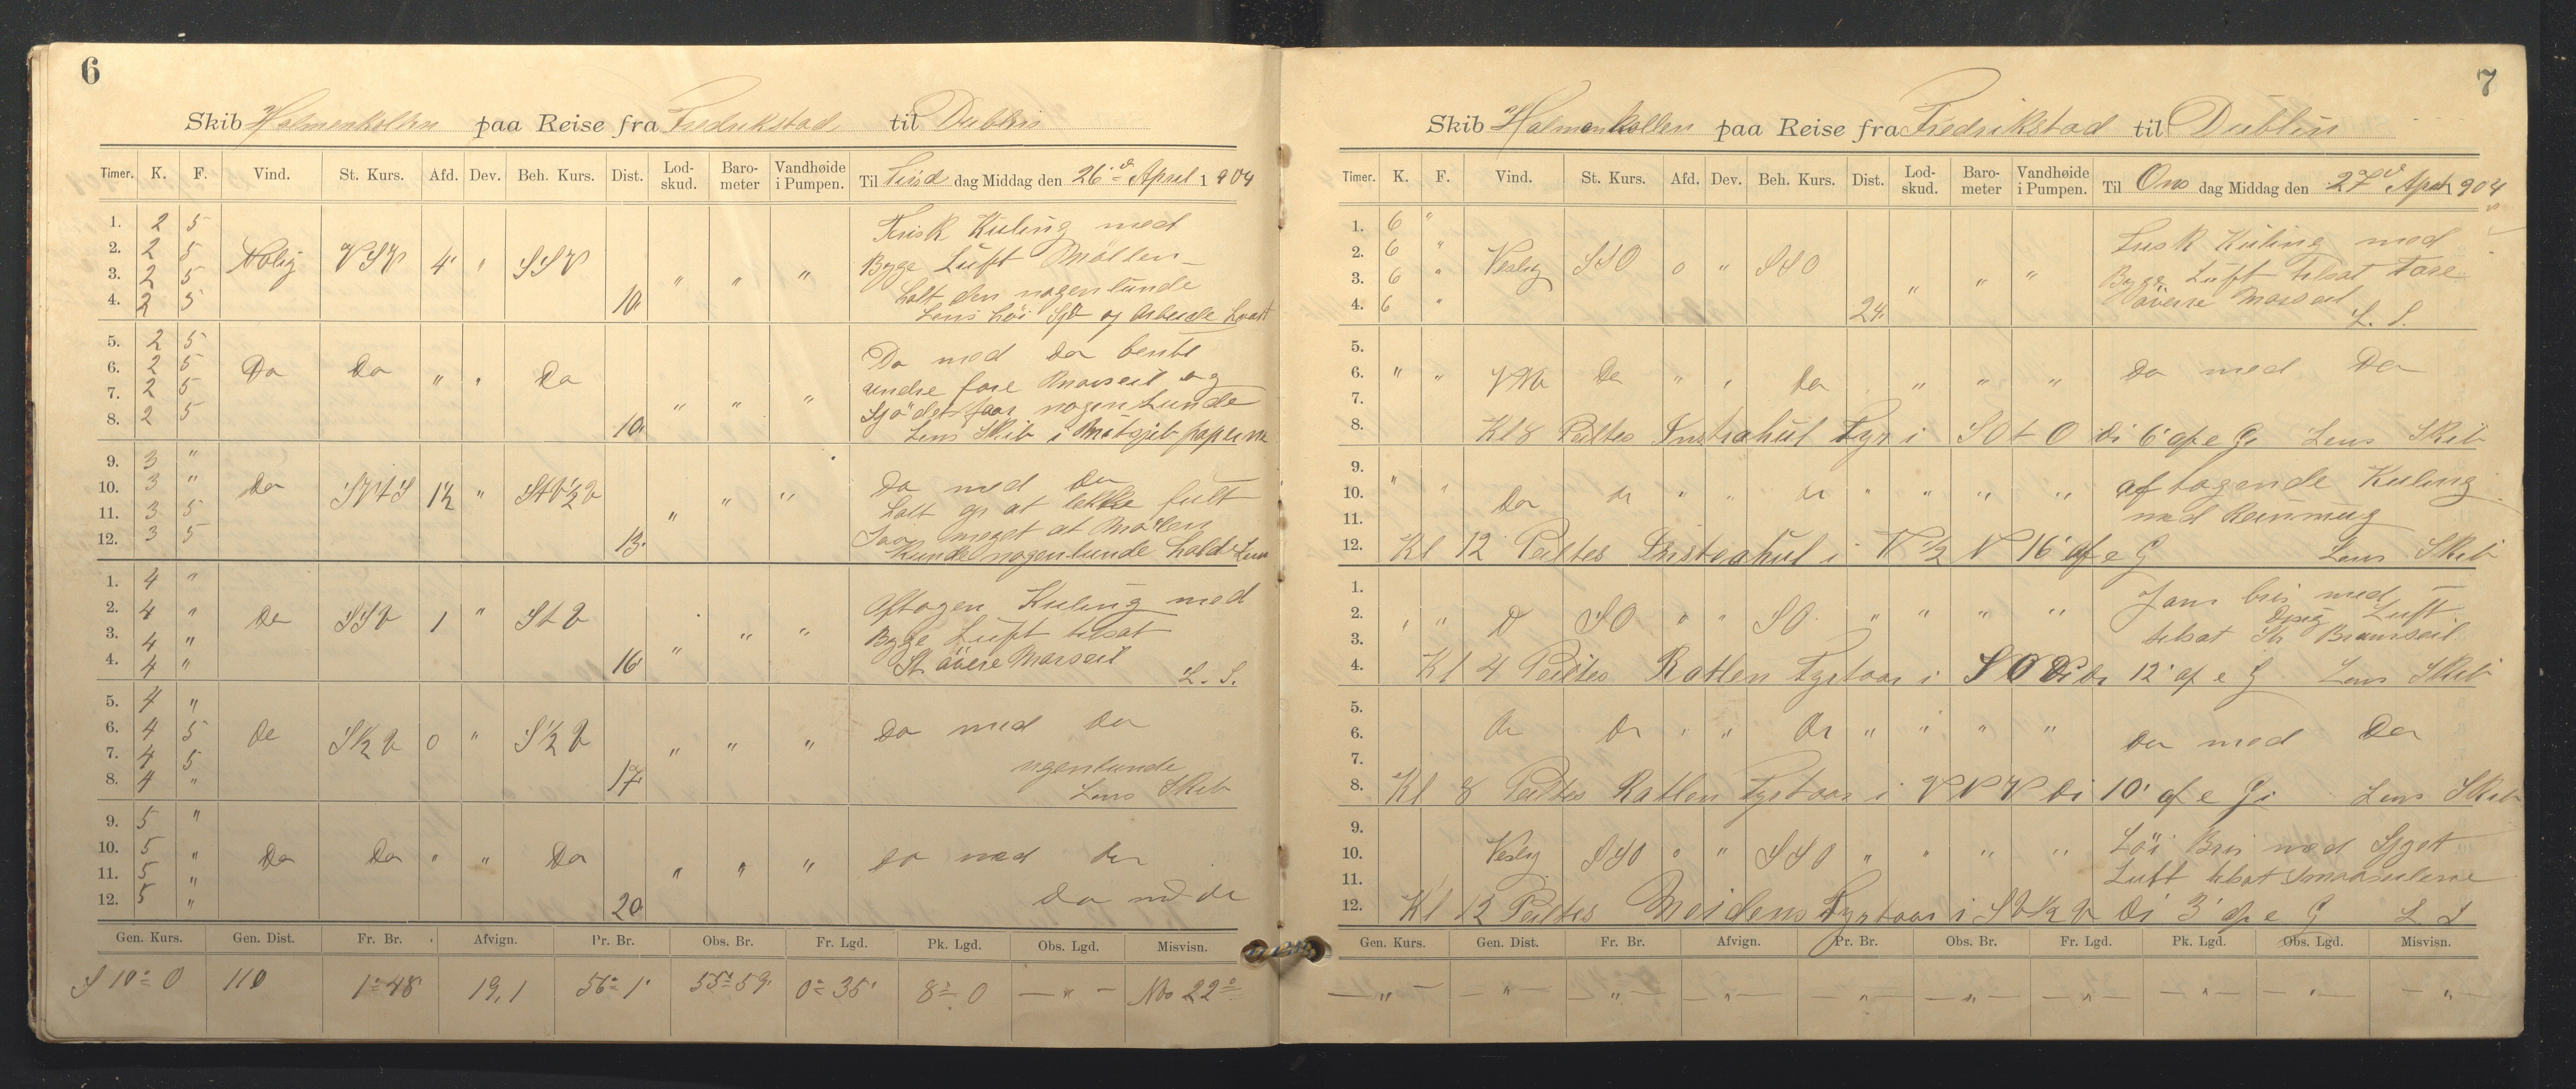 6
Skib Holmenkollen paa Reise fra Fredrikstad til Dublin
Timer. K. F. Vind. St. Kurs. Afd. Dev. Beh. Kurs. Dist. Lod-skud. Baro-meter Vandhøide i Pumpen. Til Tirsd dag Middag den 26de April 1904
1. 2 5 Frisk Kuling med
2. 2 5 Nolig VSV 4' " SSV Byge Luft Møllen
3. 2 5 " " " holt den nogenlunde
4. 2 5 10 Lens høi Sjø og Arbeide hvast
5. 2 5 Do med Do
6. 2 5 Do Do " " Do undre fore Mærseil og
7. 2 5 " " " Sjødet faar nogenlunde
8. 2 5 10 Lens Skib i
9. 3 " Do med Do
10. 3 " Do SVtS 1½ " " "
11. 3 5 " meget at Møllen
12. 3 5 13 Kunde nogenlunde holde Lens
1. 4 " Aftagen Kuling med
2. 4 " Do SSV 1 " StV " " Byge Luft tilsat
3. 4 " " St. øvere Mærseil
4. 4 " 16 L. S.
5. 4 "
6. 4 5 Do S½V 0 " S½V Do med Do
7. 4 5 " " " ngenlunde
8. 4 " 17 Lens Skib
9. 5 "
10. 5 " Do Do " " Do Do med Do
11. 5 " " " "
12. 5 " 20 Do md do
Gen. Kurs. Gen. Dist. Fr. Br. Afvign. Pr. Br. Obs. Br. Fr. Lgd. Pk. Lgd. Obs. Lgd. Misvisn.
S 10° O 110 1° 48' 19,1 56° 1' 55° 59' 0° 35' 8° 0 — " — 22°
7
Skib Holmenkollen paa Reise fra Fredrikstad til Dublin
Timer. K. F. Vind. St. Kurs. Afd. Dev. Beh. Kurs. Dist. Lod-skud. Baro-meter Vandhøide i Pumpen. Til Ons dag Middag den 27de April 1904
1. 6 "
2. 6 " Vestlig SSO 0 " SSO Frisk Kuling med
3. 6 " " " " Byge Luft tilsat Fore
4. 6 " 24 øverre Mærseil L. S.
5.
6. " " VNV Do " " Do " " " Do med Do
7.
8. Kl 8 Peiltes Fyr i SOtO Di 6' af e G Lens Skib
9.
10. " " Do do " " do " " " " aftagende Kuling
11. med
12. Kl 12 Peiltes i V½N 16' af e G Lens Skib
1. Javn bris med
2. " " D SO " " SO " " " " Disig Luft
3. tilsat St Bramseil
4. Kl 4 Peiltes Ratlen Fyrtaar i SO Di 12' af e G Lens Skib
5.
6. Do Do " " Do " " " " Do med Do
7.
8. Kl 8 Peiltes Ratlen Fyrtaar i VNV Di 10' af e G Lens Skib
9.
10. Vestlig SSO 0 " SSO " " " " Løi Bris med
11. Luft tilsat Smaaseilene
12. Kl 12 Peiltes Fyrtaar i SV½V Di 3' af e G L S
Gen. Kurs. Gen. Dist. Fr. Br. Afvign. Pr. Br. Obs. Br. Fr. Lgd. Pk. Lgd. Obs. Lgd. Misvisn.
— " — — " — — " — — " — — " — — " — — " — — " — — " — — " —